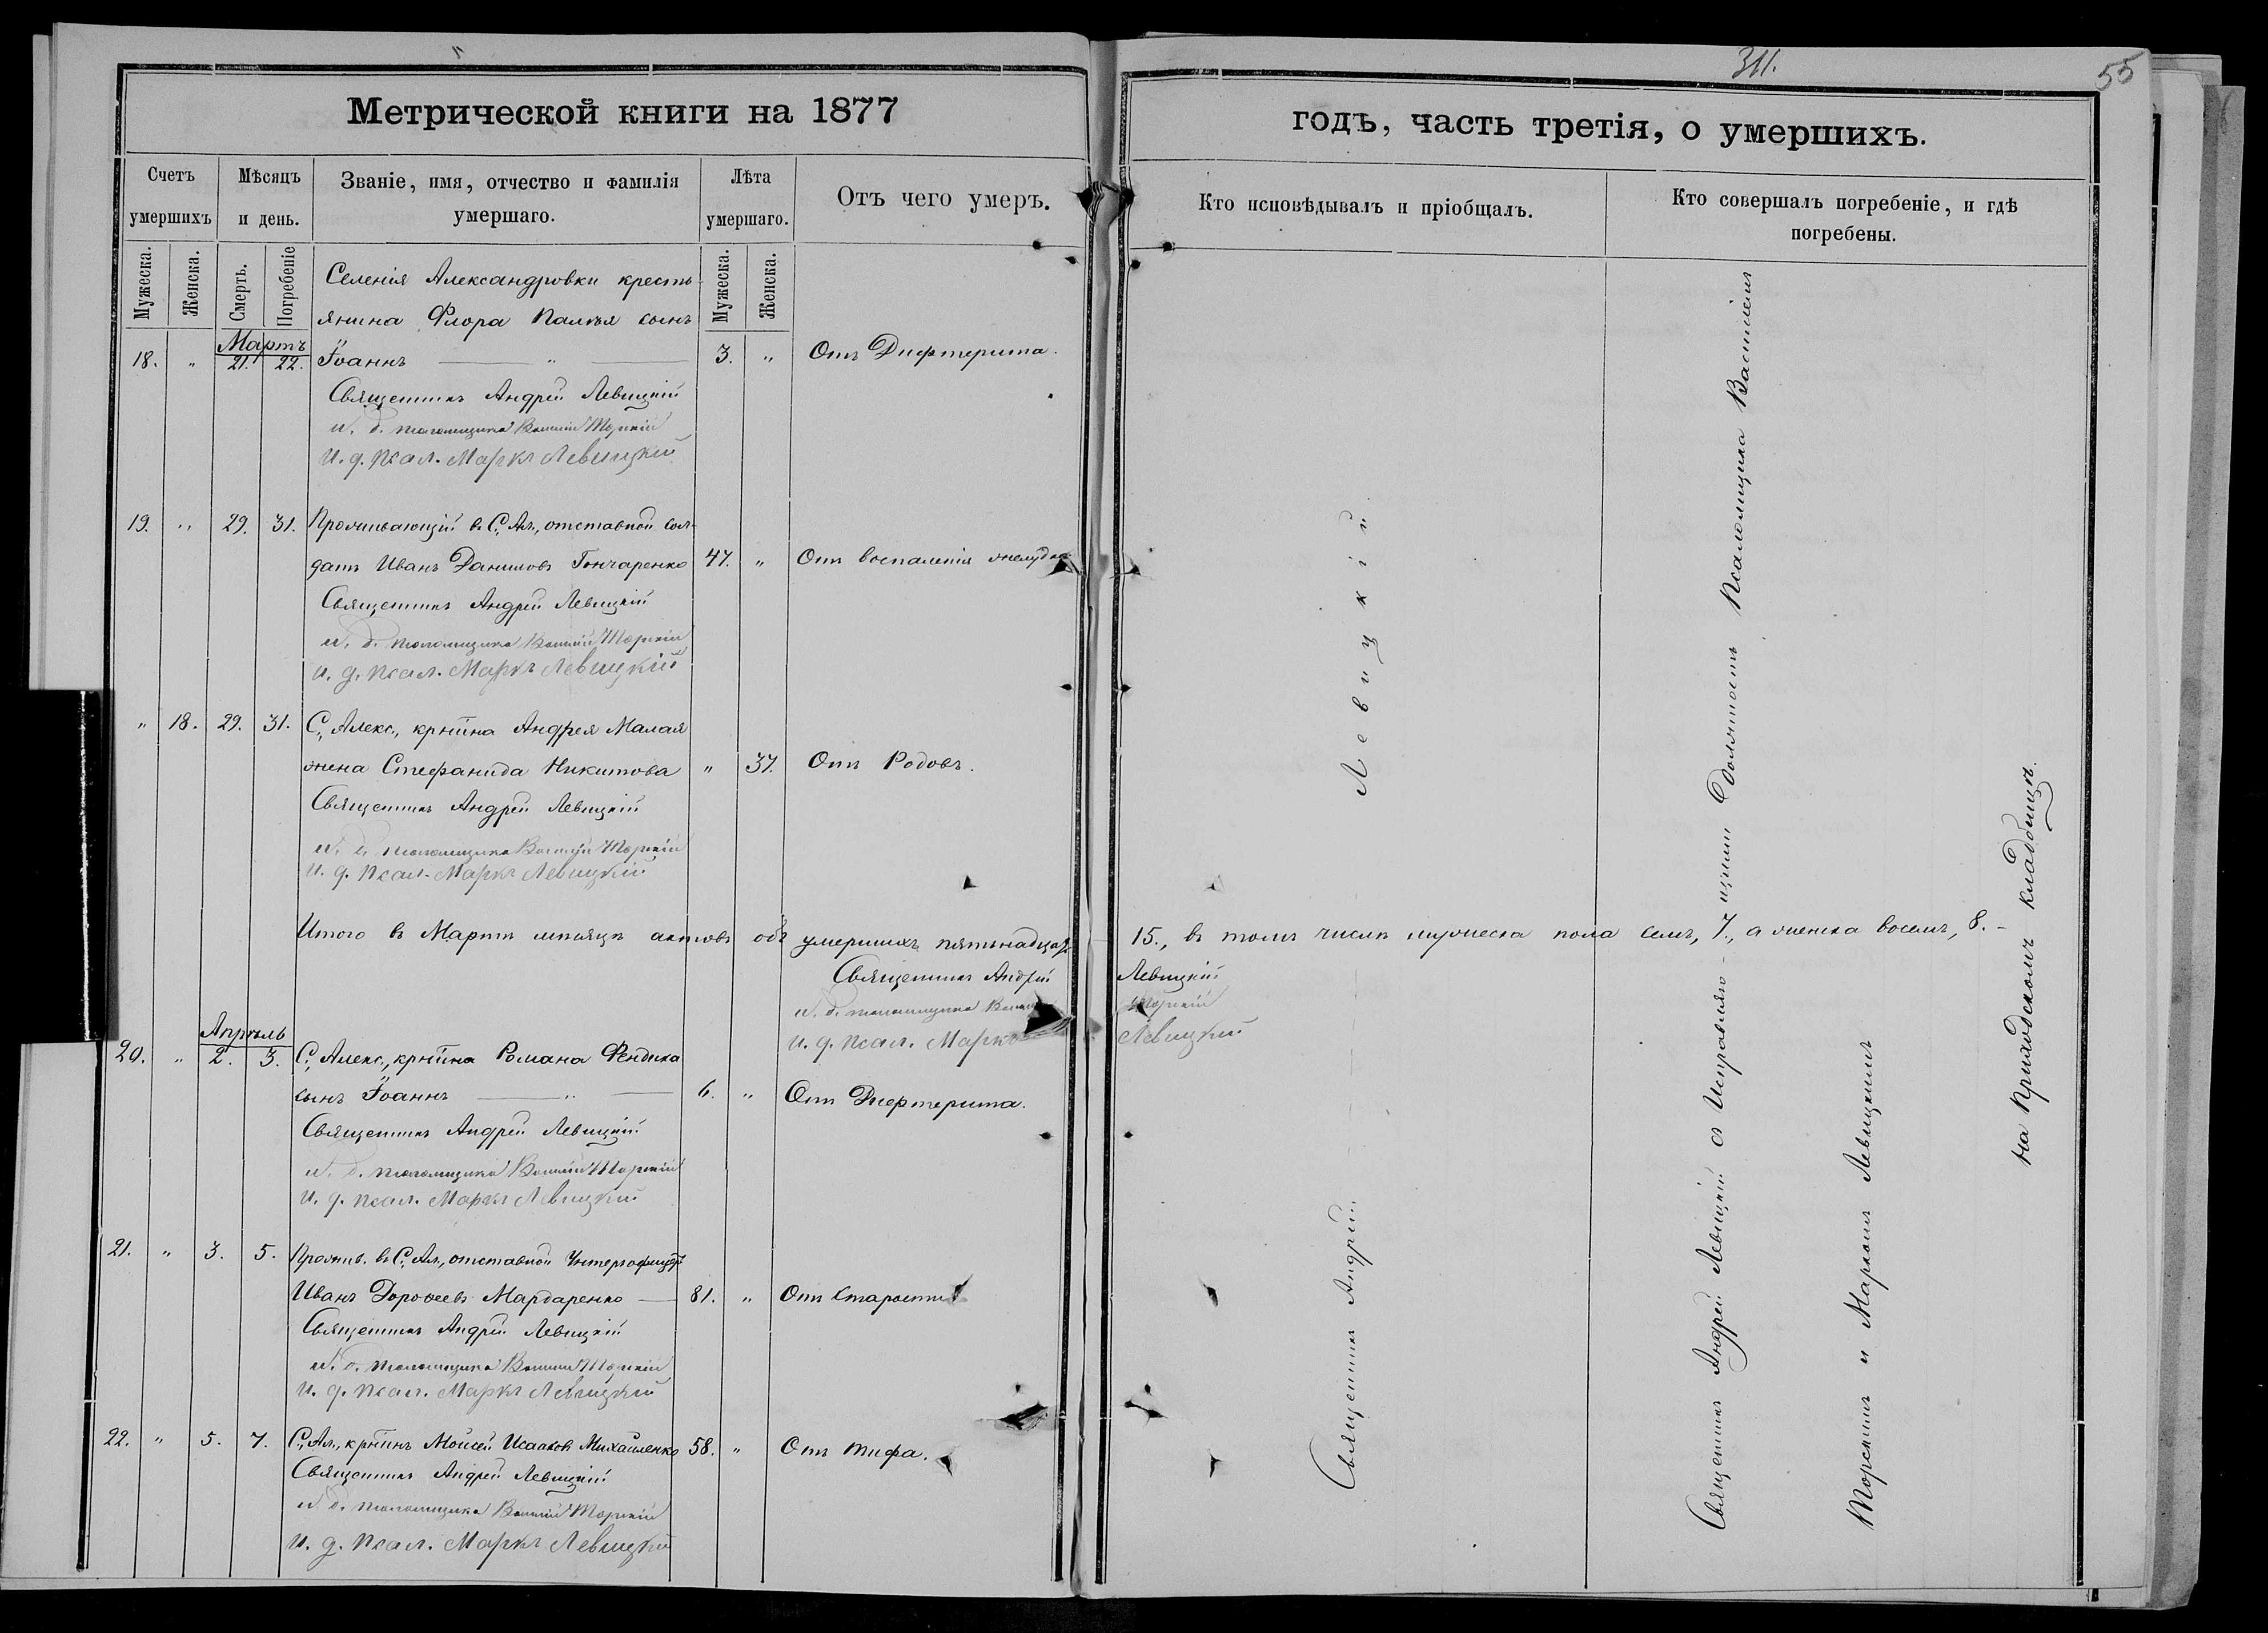 311.
55
Метрической книги на 1877
годъ, часть третія, о умершихъ.
Счетъ умершихъ
Мѣсяцъ и день.
Званіе, имя, отчество и фамилія умершаго.
Лѣта умершаго.
Отъ чего умеръ.
Кто исповѣдывалъ и пріобщалъ.
Кто совершалъ погребеніе, и гдѣ погребены.
Мужеска. Женска. Смерть. Погребеніе Мужеска. Женска.
Селенія Александровки кресть-
янина Флора сынъ
Мартъ
18. „ 21. 22. Іоаннъ „ 3. „ Отъ Дифтерита.
Священникъ Андрей Левицкій
и. д. псаломщика Василій Торскій
И. д. псал. Маркъ Левицкій
19. „ 29. 31. Проживающій въ С. Ал., отставной сол-
датъ Иванъ Даниловъ Гончаренко 47. „ Отъ воспаленія желудка
Священникъ Андрей Левицкій
и. д. псаломщика Василій Торскій
и. д. псал. Маркъ Левицкій
„ 18. 29. 31. С. Алекс., кр-тина Андрея Малая
жена Стефанида Никитова „ 37. Отъ Родовъ.
Священникъ Андрей Левицкій
и. д. псаломщика Василій Торскій
И. д. псал. Маркъ Левицкій
Итого въ Мартѣ мѣсяцѣ актовъ объ умершихъ пятьнадцать 15., въ томъ числѣ мужеска пола семь, 7., а женска восемь, 8.
Священникъ Андрей Левицкій
и. д. псаломщика Василій Торскій
И. д. псал. Маркъ Левицкій
Апрѣль
20. „ 2. 3. С. Алекс., кр-тина Романа Фендика
сынъ Іоаннъ „ 6. „ Отъ Дифтерита.
Священникъ Андрей Левицкій
и. д. псаломщика Василій Торскій
И. д. псал. Маркъ Левицкій
21. „ 3. 5. Прожив. въ С. Ал., отставной Унтерофицеръ
Иванъ Дорофеевъ Мардаренко 81. „ Отъ Старости
Священникъ Андрей Левицкій
и. д. псаломщика Василій Торскій
И. д. псал. Маркъ Левицкій
22. „ 5. 7. С. Ал., кр-тинъ Мойсей Исааковъ Михайленко 58. „ Отъ тифа.
Священникъ Андрей Левицкій
и. д. псаломщика Василій Торскій
И. д. псал. Маркъ Левицкій
Священникъ Андрей Левицкій
Священникъ Андрей Левицкій съ Исправляю-щими Должность Псаломщика Василіемъ
Торскимъ и Маркомъ Левицкимъ
на приходскомъ кладбищѣ.